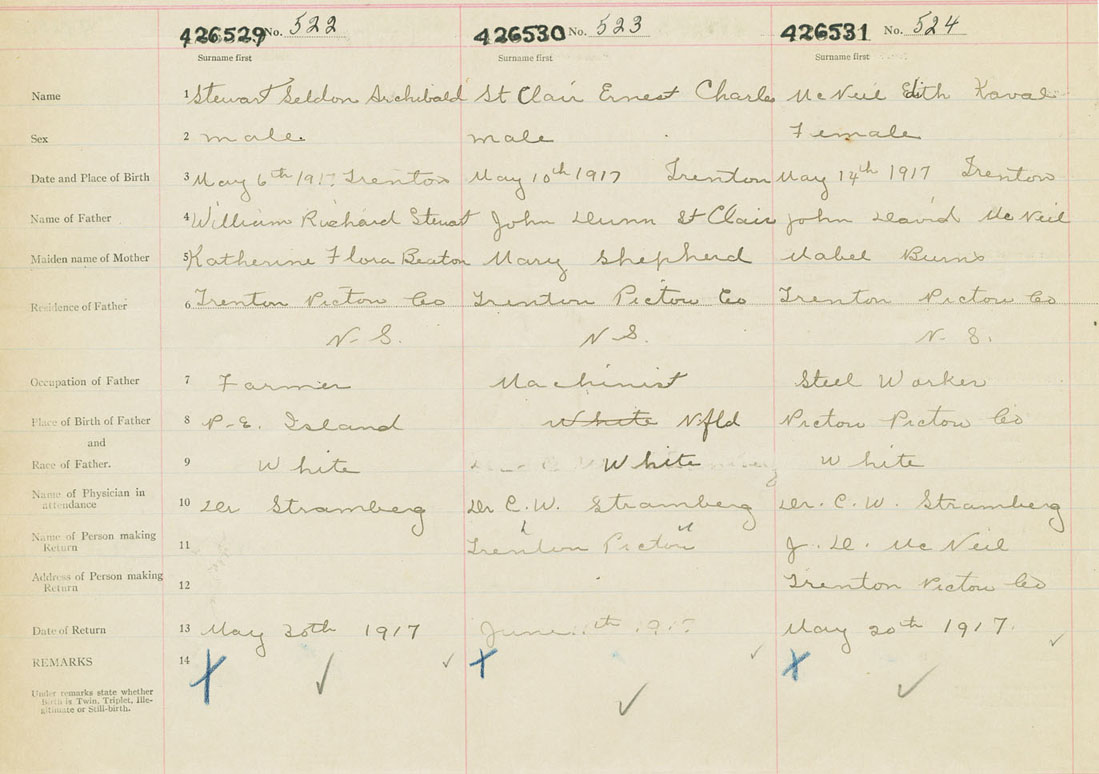 426529 No. 522 426530 No. 523 426531 No. 524
Surname first Surname first Surname first
Name 1 Stewart Seldon Archibald St Clair Ernest Charles McNeil Edith
Sex 2 male male Female
Date and Place of Birth 3 May 6th 191 Trenton May 10th 1917 Trenton May 14th 1917 Trenton
Name of Father 4 William Richard Stewart John Dunn St Clair John David McNeil
Maiden name of Mother 5 Katherine Flora Beaton Mary Shepherd Mabel Burns
Residence of Father 6 Trenton Pictou Co Trenton Pictou Co Trenton Pictou Co
N.S. N S. N. S.
Occupation of Father 7 Farmer Machinist Steel Worker
Place of Birth of Father 8 P.E. Island White Nfld Pictou Pictou Co
and
Race of Father. 9 White White White
Name of Physician in
attendance 10 Dr Stramberg Dr C.W. Stramberg Dr. C. W. Stramberg
Name of Person making
Return 11 Trenton Pictou J. D. McNeil
Address of Person making
Return 12 Trenton Pictou Co
Date of Return 13 May 20th 1917 June th 1917 May 20th 1917.
REMARKS 14
Under remarks state whether
Birth is Twin, Triplet, Ille-
gitimate or Still-birth.